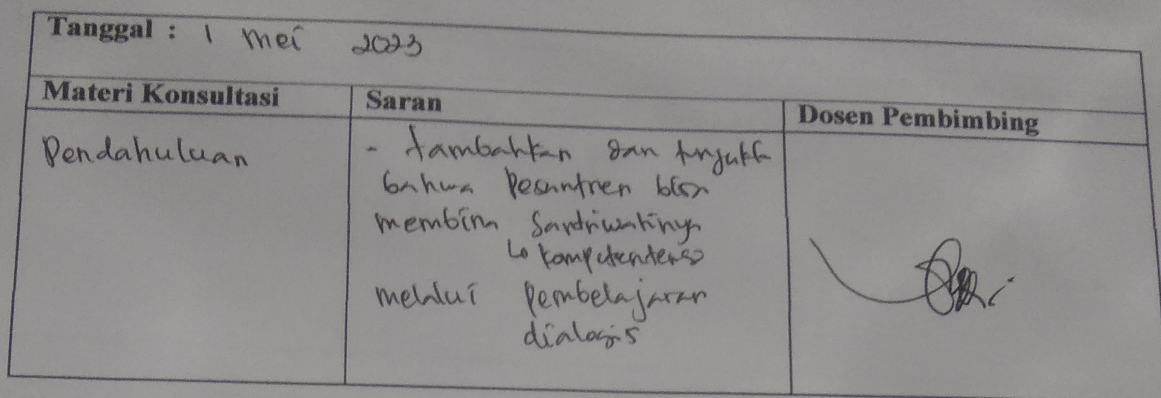 Tanggal : 1 mei 2023
Materi Konsultasi Saran Dosen Pembimbing
Pendahuluan
- tambahkan dan tunjukk
bahwa Pesantren bisa
membina Santriwatinya
↳
melalui Pembelajaran
dialogis